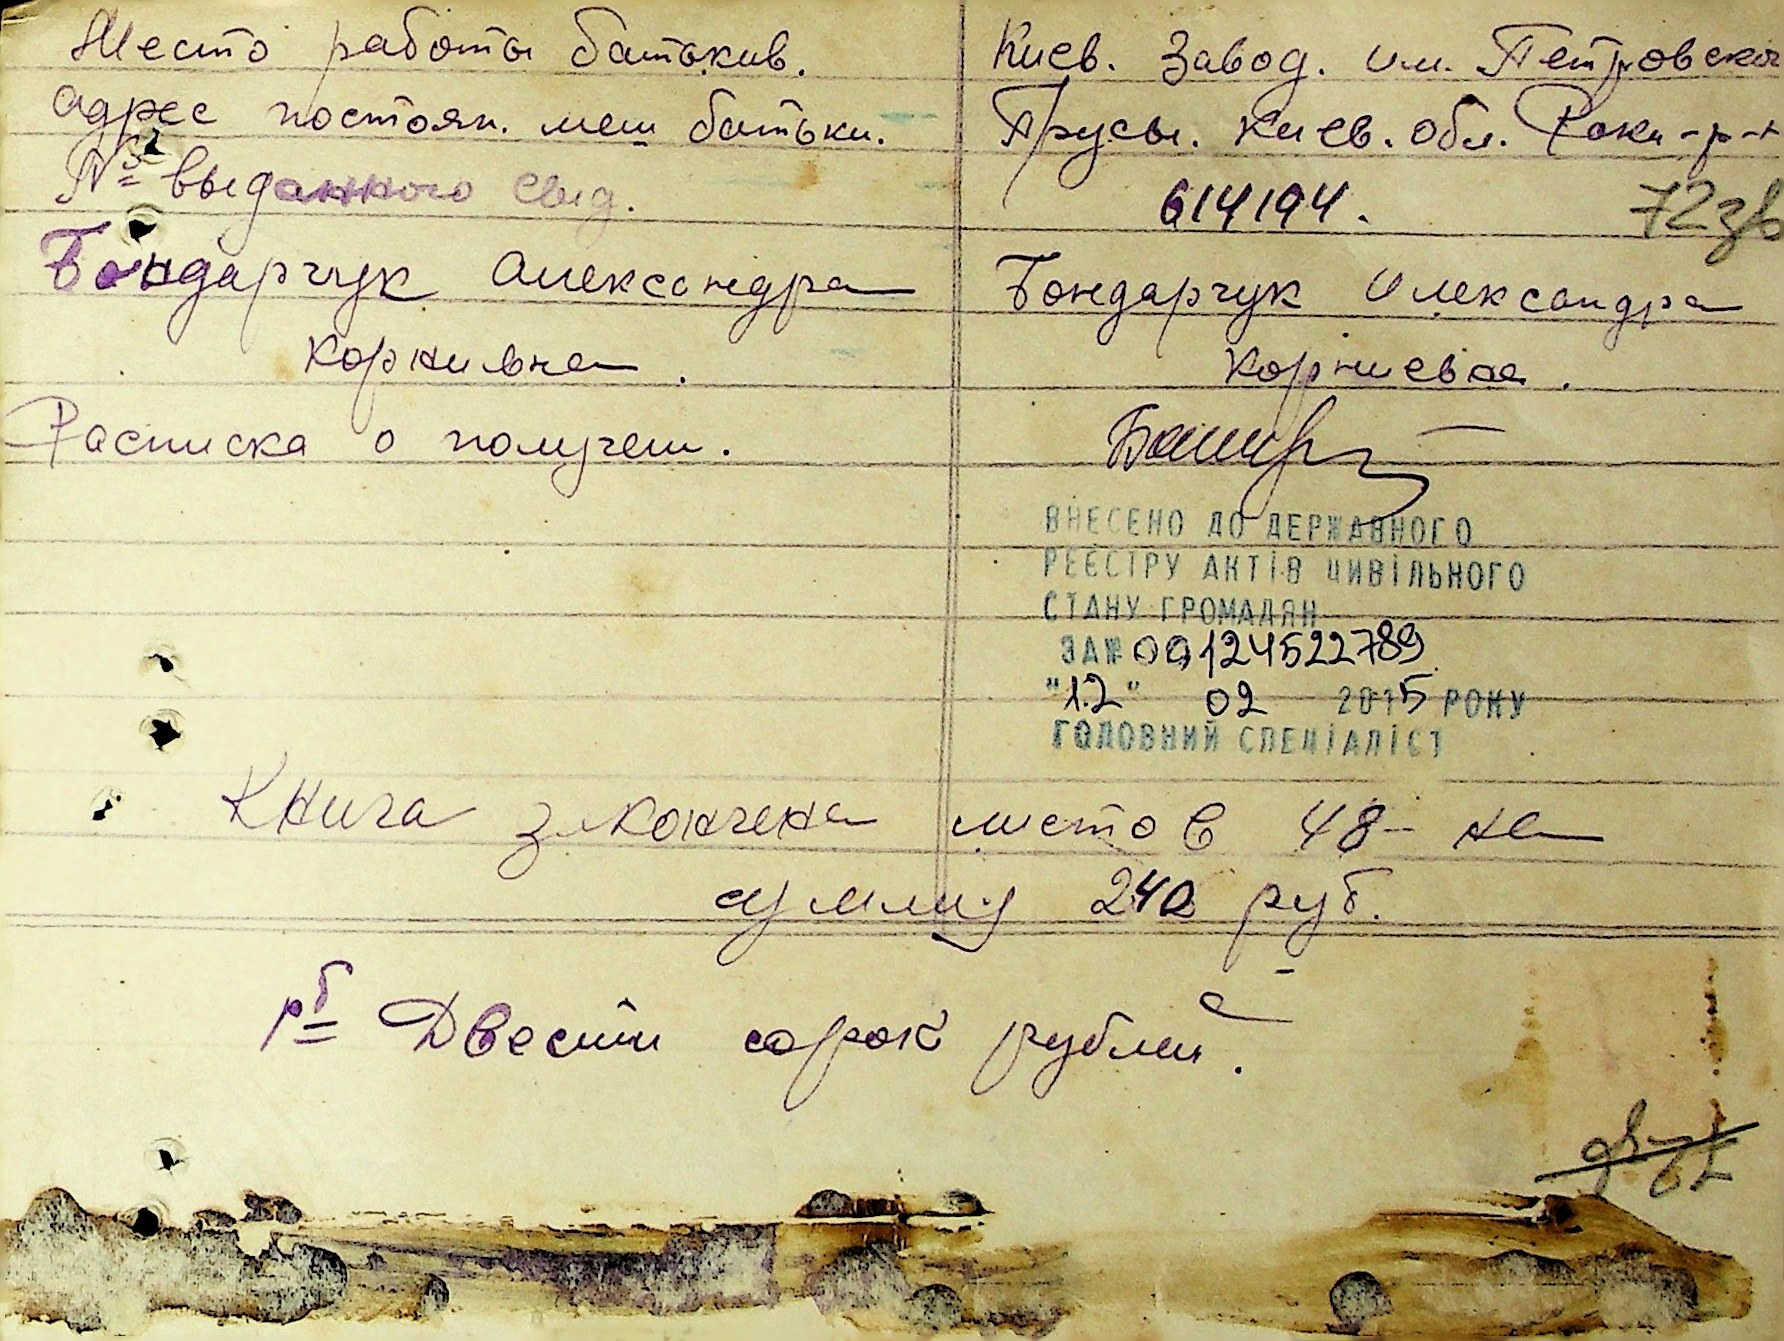 Место работы батькив. Киев. Завод. им. Петровског
Адрес постоян. меш батьки. Трусы. Киев. обл. Роки-р-н
№ выданного свид. 614194. 72зв
Бондарчук Александра Бондарчук Александра
Корнивна. Корниевна.
Расписка о получен.
ВНЕСЕНО ДО ДЕРЖАВНОГО
РЕЄСТРУ АКТІВ ЦИВІЛЬНОГО
СТАНУ ГРОМАДЯН
ЗА № 00124522789
"12" 02 2015 РОКУ
ГОЛОВНИЙ СПЕЦІАЛІСТ
Книга закончена листов 48 - на
сумму 240 руб.
рб Двести сорок рублей.